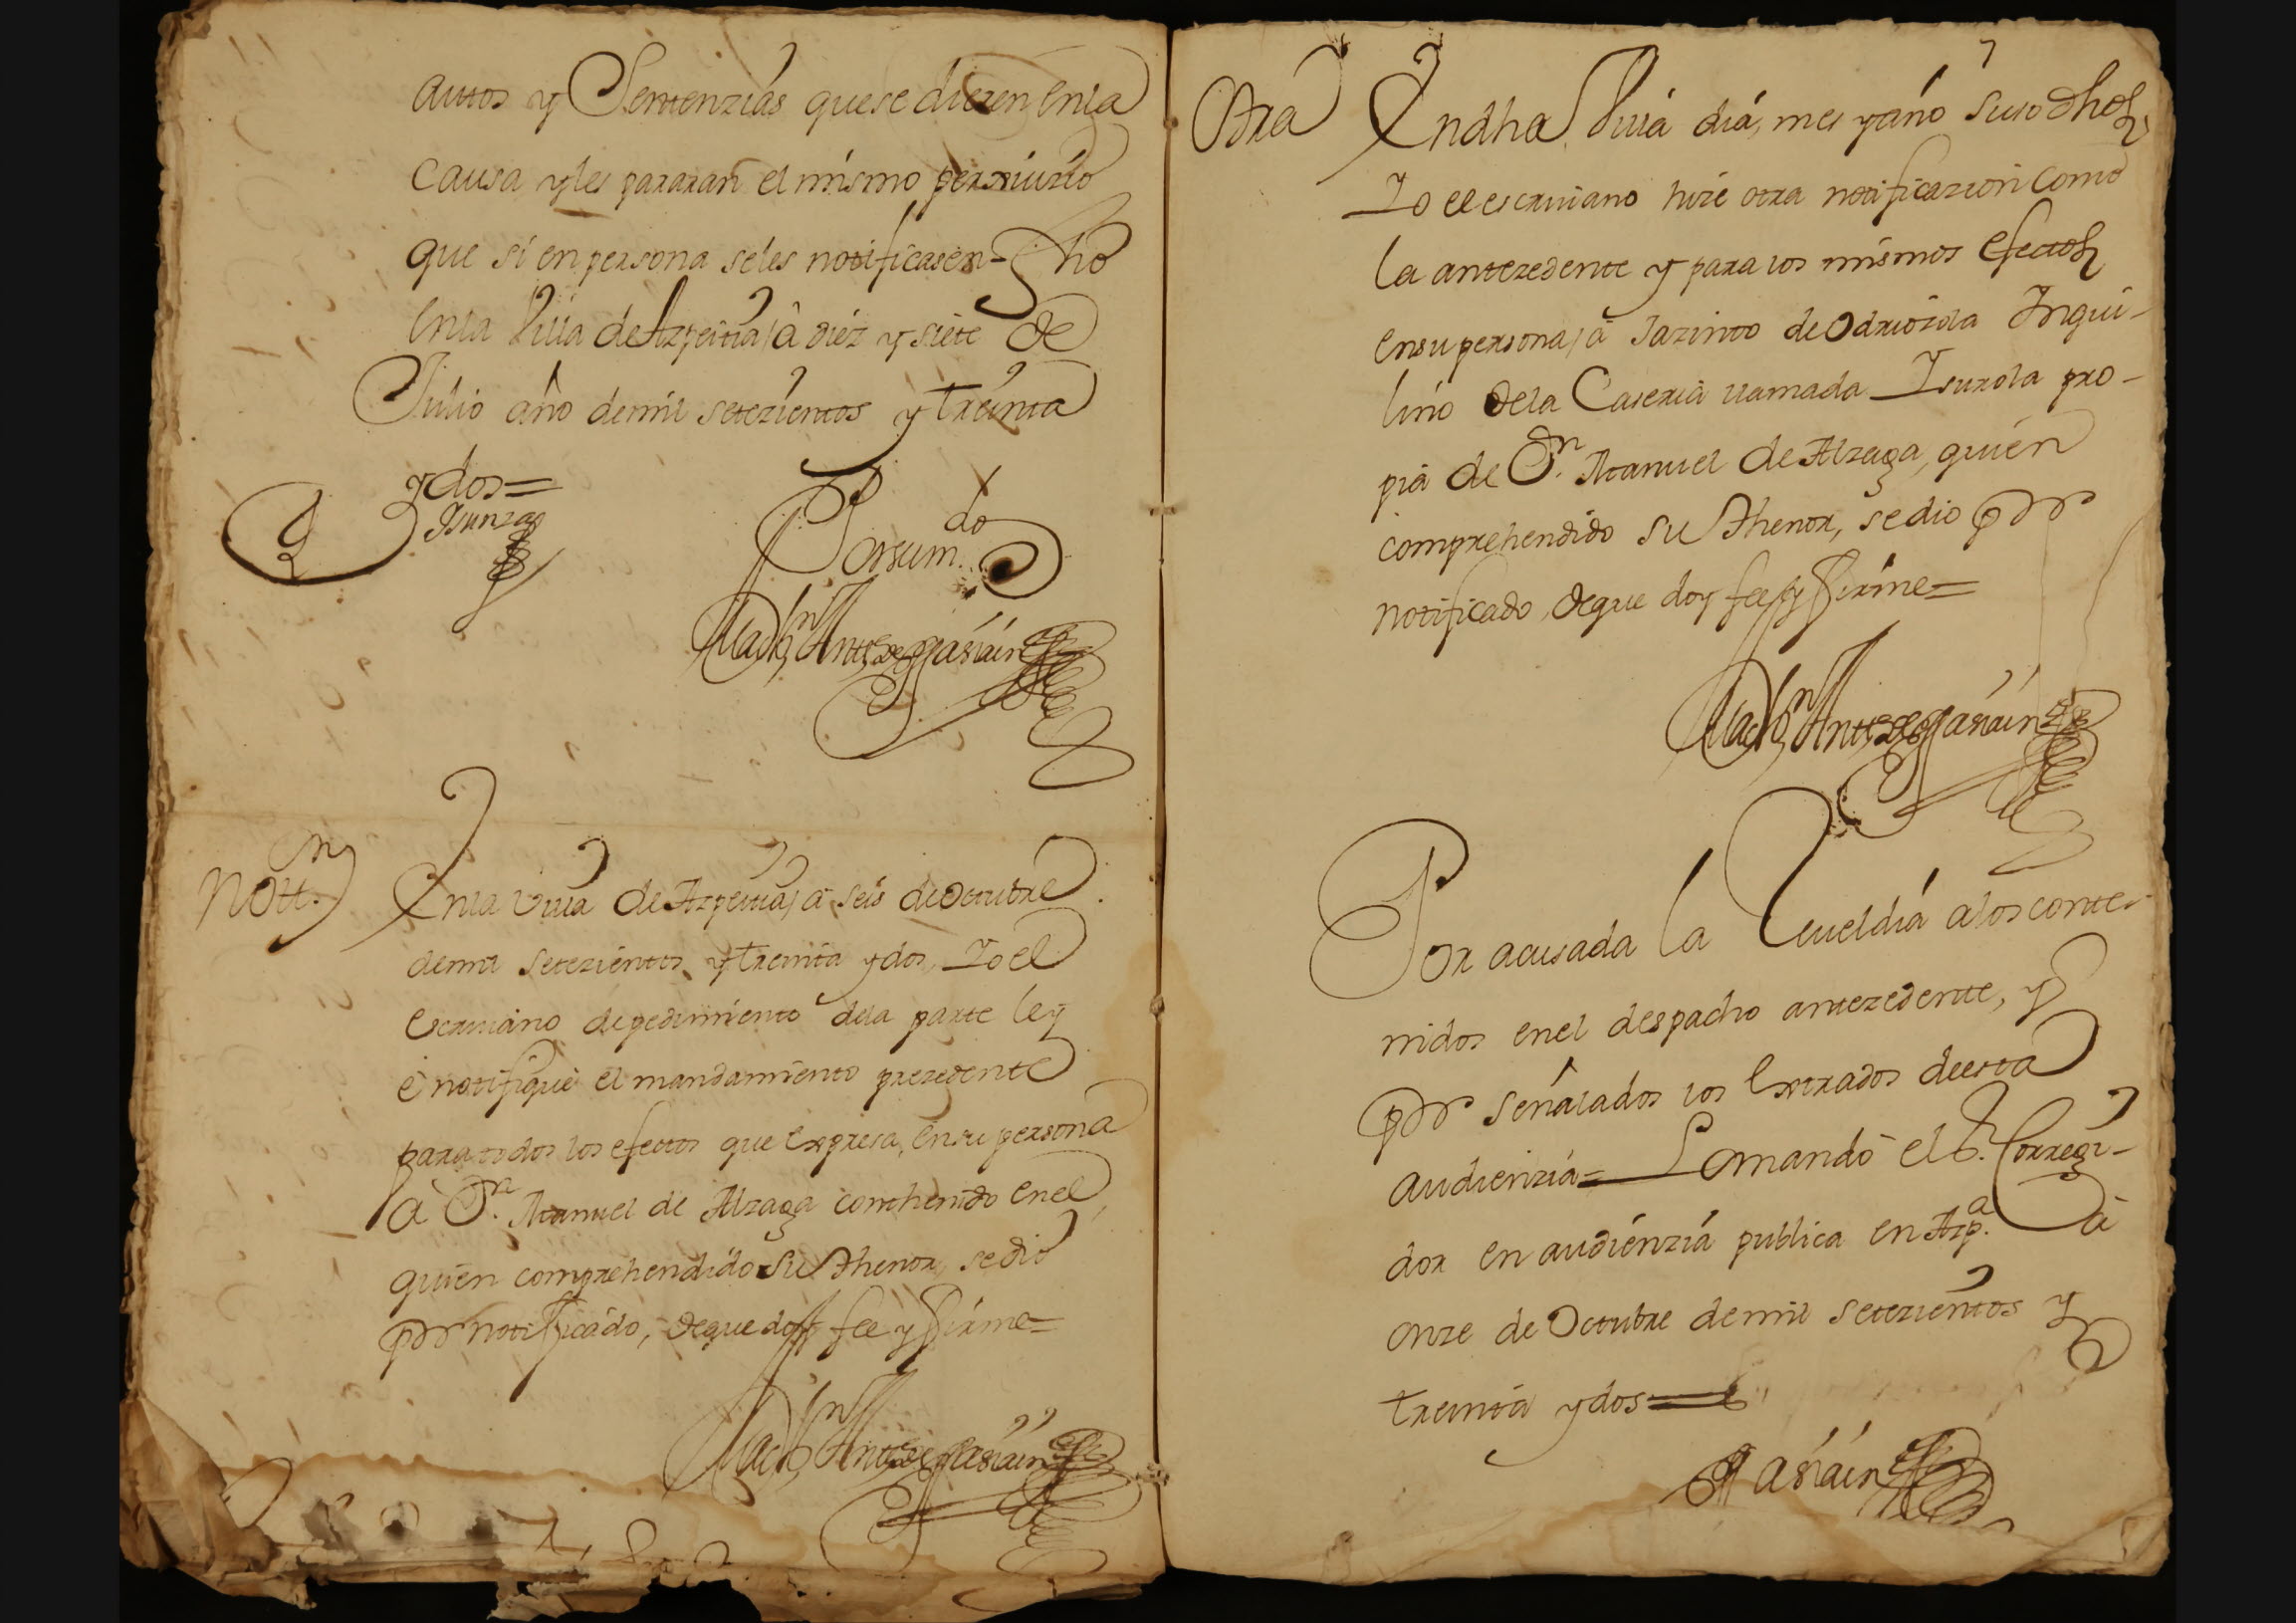 autos y Sentenzias que se dieren en la
causa y les pararan el mismo perxiuizio
que si en persona se les notificasen = fho
en la Villa de Azpeitia, â diez y siete de
Julio año de mil setezientos y treinta
y dos =
Por su m.do
Nott.n
En la villa de Azpeitia, a seis de Octubre
de mil setezientos y treinta y dos, Yo el
escriuano de pedimiento dela parte ley
è notifiquè el mandamiento prezedente
para todos los efectos que expresa, en su persona
à D.n Manuel de Alzaga conthenido en el,
quien comprehendido su thenor, se dio
por notificado, de que doy fee y firme =
Otra
En dha Villa dia, mes y año suso dhos
Yo el escriuano hize otra notificazion como
la antezedente y para los mismos efectos
en su persona, à Jazinto de Odriozola Inqui-
lino dela Caseria llamada Isurola pro-
pia de D.n Manuel de Alzaga, quien
comprehendido su thenor, se dio por
notificado, de que doy fee y firme =
Por acusada la Reueldia a los conte-
nidos en el despacho antezedente, y
por señalados los Extrados de esta
Audienzia = Lo mandò el S.r Corregi-
dor en audienzia publica en Azp.a à
onze de Octubre de mil setezientos y
treinta y dos =
Gasiain